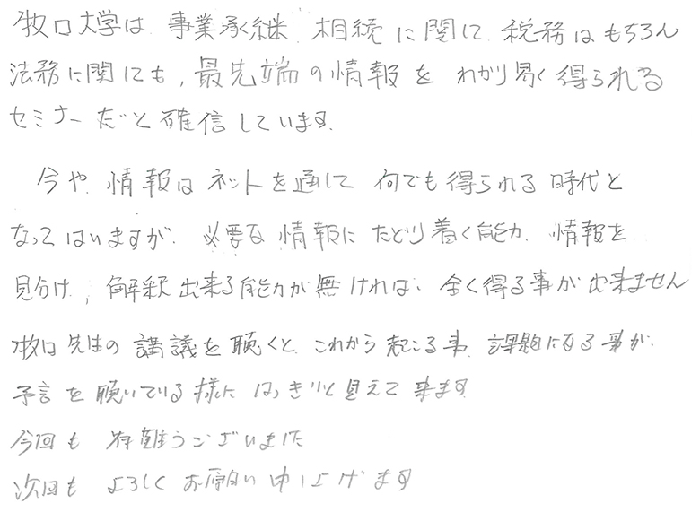 牧口大学は、事業承継、相続に関して、税務はもちろん
法務に関しても、最先端の情報を わかり易く得られる
セミナーだと確信しています。
今や、情報はネットを通して 何でも得られる時代と
なってはいますが、必要な情報に たどり着く能力、情報を
見分け、解釈出来る能力が無ければ、全く得る事が出来ません
牧口先生の講議を聴くと、これから起こる事、課題になる事が、
予言を聴いている様に はっきりと見えて来ます
今回も 有難うございました
次回も よろしくお願い申し上げます